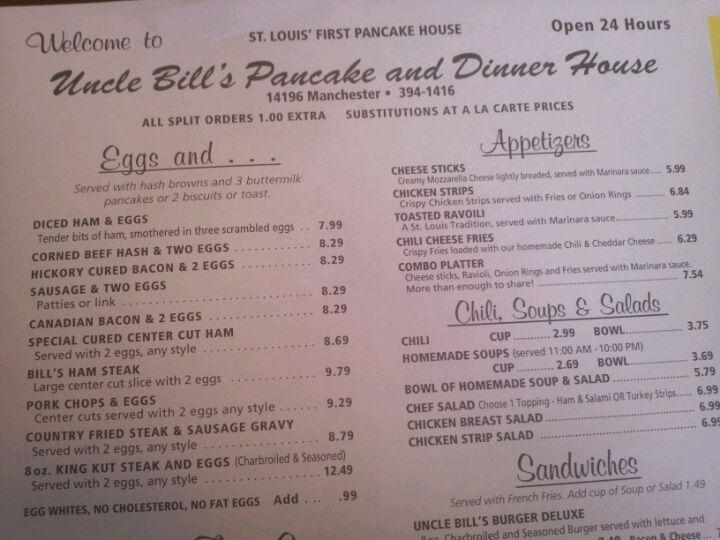 Welcome to
ST. LOUIS' FIRST PANCAKE HOUSE
Open 24 Hours
Uncle Bill's Pancake and Dinner House
14196 Manchester • 394-1416
ALL SPLIT ORDERS 1.00 EXTRA SUBSTITUTIONS AT A LA CARTE PRICES
Eggs and . . .
Served with hash browns and 3 buttermilk
pancakes or 2 biscuits or toast.
DICED HAM & EGGS
Tender bits of ham, smothered in three scrambled eggs . . 7.99
CORNED BEEF HASH & TWO EGGS . . . . . . . . . . . . 8.29
HICKORY CURED BACON & 2 EGGS . . . . . . . . . . . 8.29
SAUSAGE & TWO EGGS
Patties or link . . . . . . . . . . . . . . . . . . . . . . . . . 8.29
CANADIAN BACON & 2 EGGS . . . . . . . . . . . . . . . 8.29
SPECIAL CURED CENTER CUT HAM
Served with 2 eggs, any style . . . . . . . . . . . . . . 8.69
BILL'S HAM STEAK
Large center cut slice with 2 eggs . . . . . . . . . . . 9.79
PORK CHOPS & EGGS
Center cuts served with 2 eggs any style . . . . . . 9.29
COUNTRY FRIED STEAK & SAUSAGE GRAVY
Served with 2 eggs, any style . . . . . . . . . . . . . . 8.79
8 oz. KING KUT STEAK AND EGGS (Charbroiled & Seasoned)
Served with 2 eggs, any style . . . . . . . . . . . . . . 12.49
EGG WHITES, NO CHOLESTEROL, NO FAT EGGS Add . . . .99
Appetizers
CHEESE STICKS
Creamy Mozzarella Cheese lightly breaded, served with Marinara sauce.... 5.99
CHICKEN STRIPS
Crispy Chicken Strips served with Fries or Onion Rings .......... 6.84
TOASTED RAVOILI
A St. Louis Tradition, served with Marinara sauce...................... 5.99
CHILI CHEESE FRIES
Crispy Fries loaded with our homemade Chili & Cheddar Cheese ...... 6.29
COMBO PLATTER
Cheese sticks, Ravioli, Onion Rings and Fries served with Marinara sauce.
More than enough to share! ........................................ 7.54
Chili, Soups & Salads
CHILI CUP ............ 2.99 BOWL............... 3.75
HOMEMADE SOUPS (served 11:00 AM - 10:00 PM)
CUP ............ 2.69 BOWL............... 3.69
BOWL OF HOMEMADE SOUP & SALAD ...................... 5.79
CHEF SALAD Choose 1 Topping - Ham & Salami OR Turkey Strips..... 6.99
CHICKEN BREAST SALAD ..................................... 6.99
CHICKEN STRIP SALAD ....................................... 6.99
Sandwiches
Served with French Fries. Add cup of Soup or Salad 1.49
UNCLE BILL'S BURGER DELUXE
8oz. Charbroiled and Seasoned Burger served with lettuce and
Bacon & Cheese ...